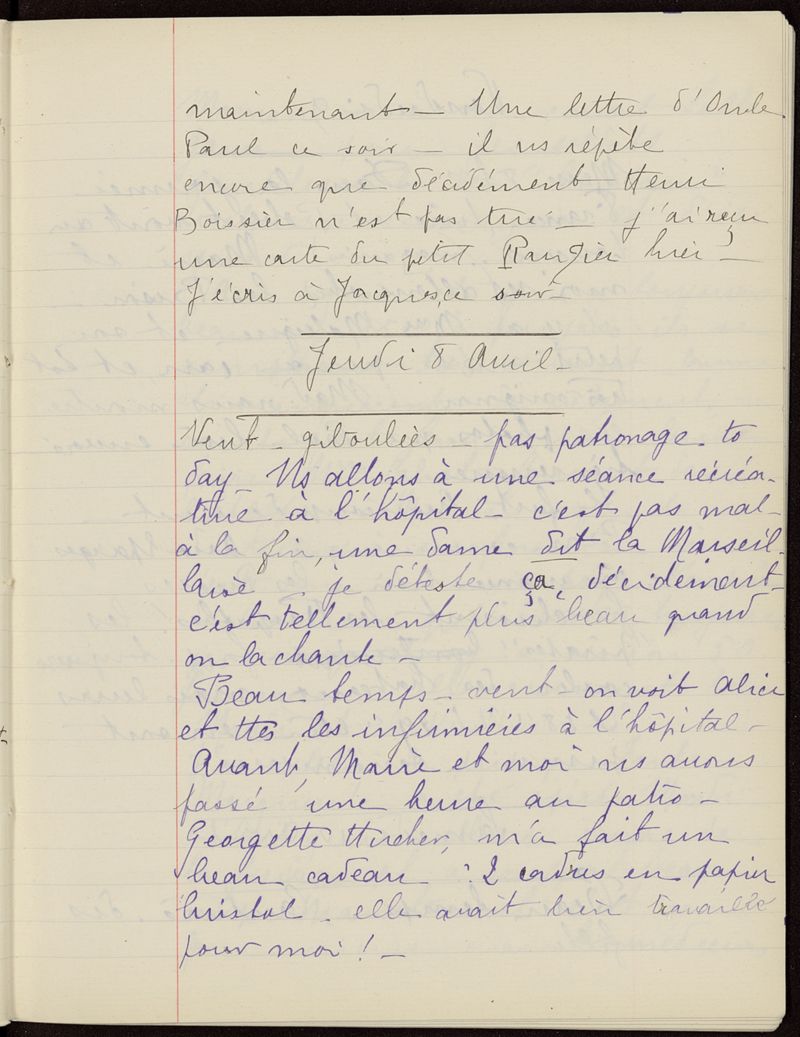 maintenant - Une lettre d'Oncle
Paul ce soir - il ns répète
encore que décidément Henri
Boissier n'est pas tué - j'ai reçu
une carte du petit hier -
J'écris à Jacques ce soir -
Jeudi 8 Avril -
Vent - giboulées - pas patronage to
day - Ns allons à une séance récréa-
tive à l'hôpital - c'est pas mal -
à la fin, une dame dit la Marseil-
laise - je déteste ça, décidément -
c'est tellement plus beau quand
on la chante -
Beau temps - vent - on voit Alice
et ttes les infirmières à l'hôpital -
Avant, Marie et moi ns avons
passé une heure au patro -
Georgette m'a fait un
beau cadeau : 2 cadres en papier
bristol - elle avait bien travaillé
pour moi ! -